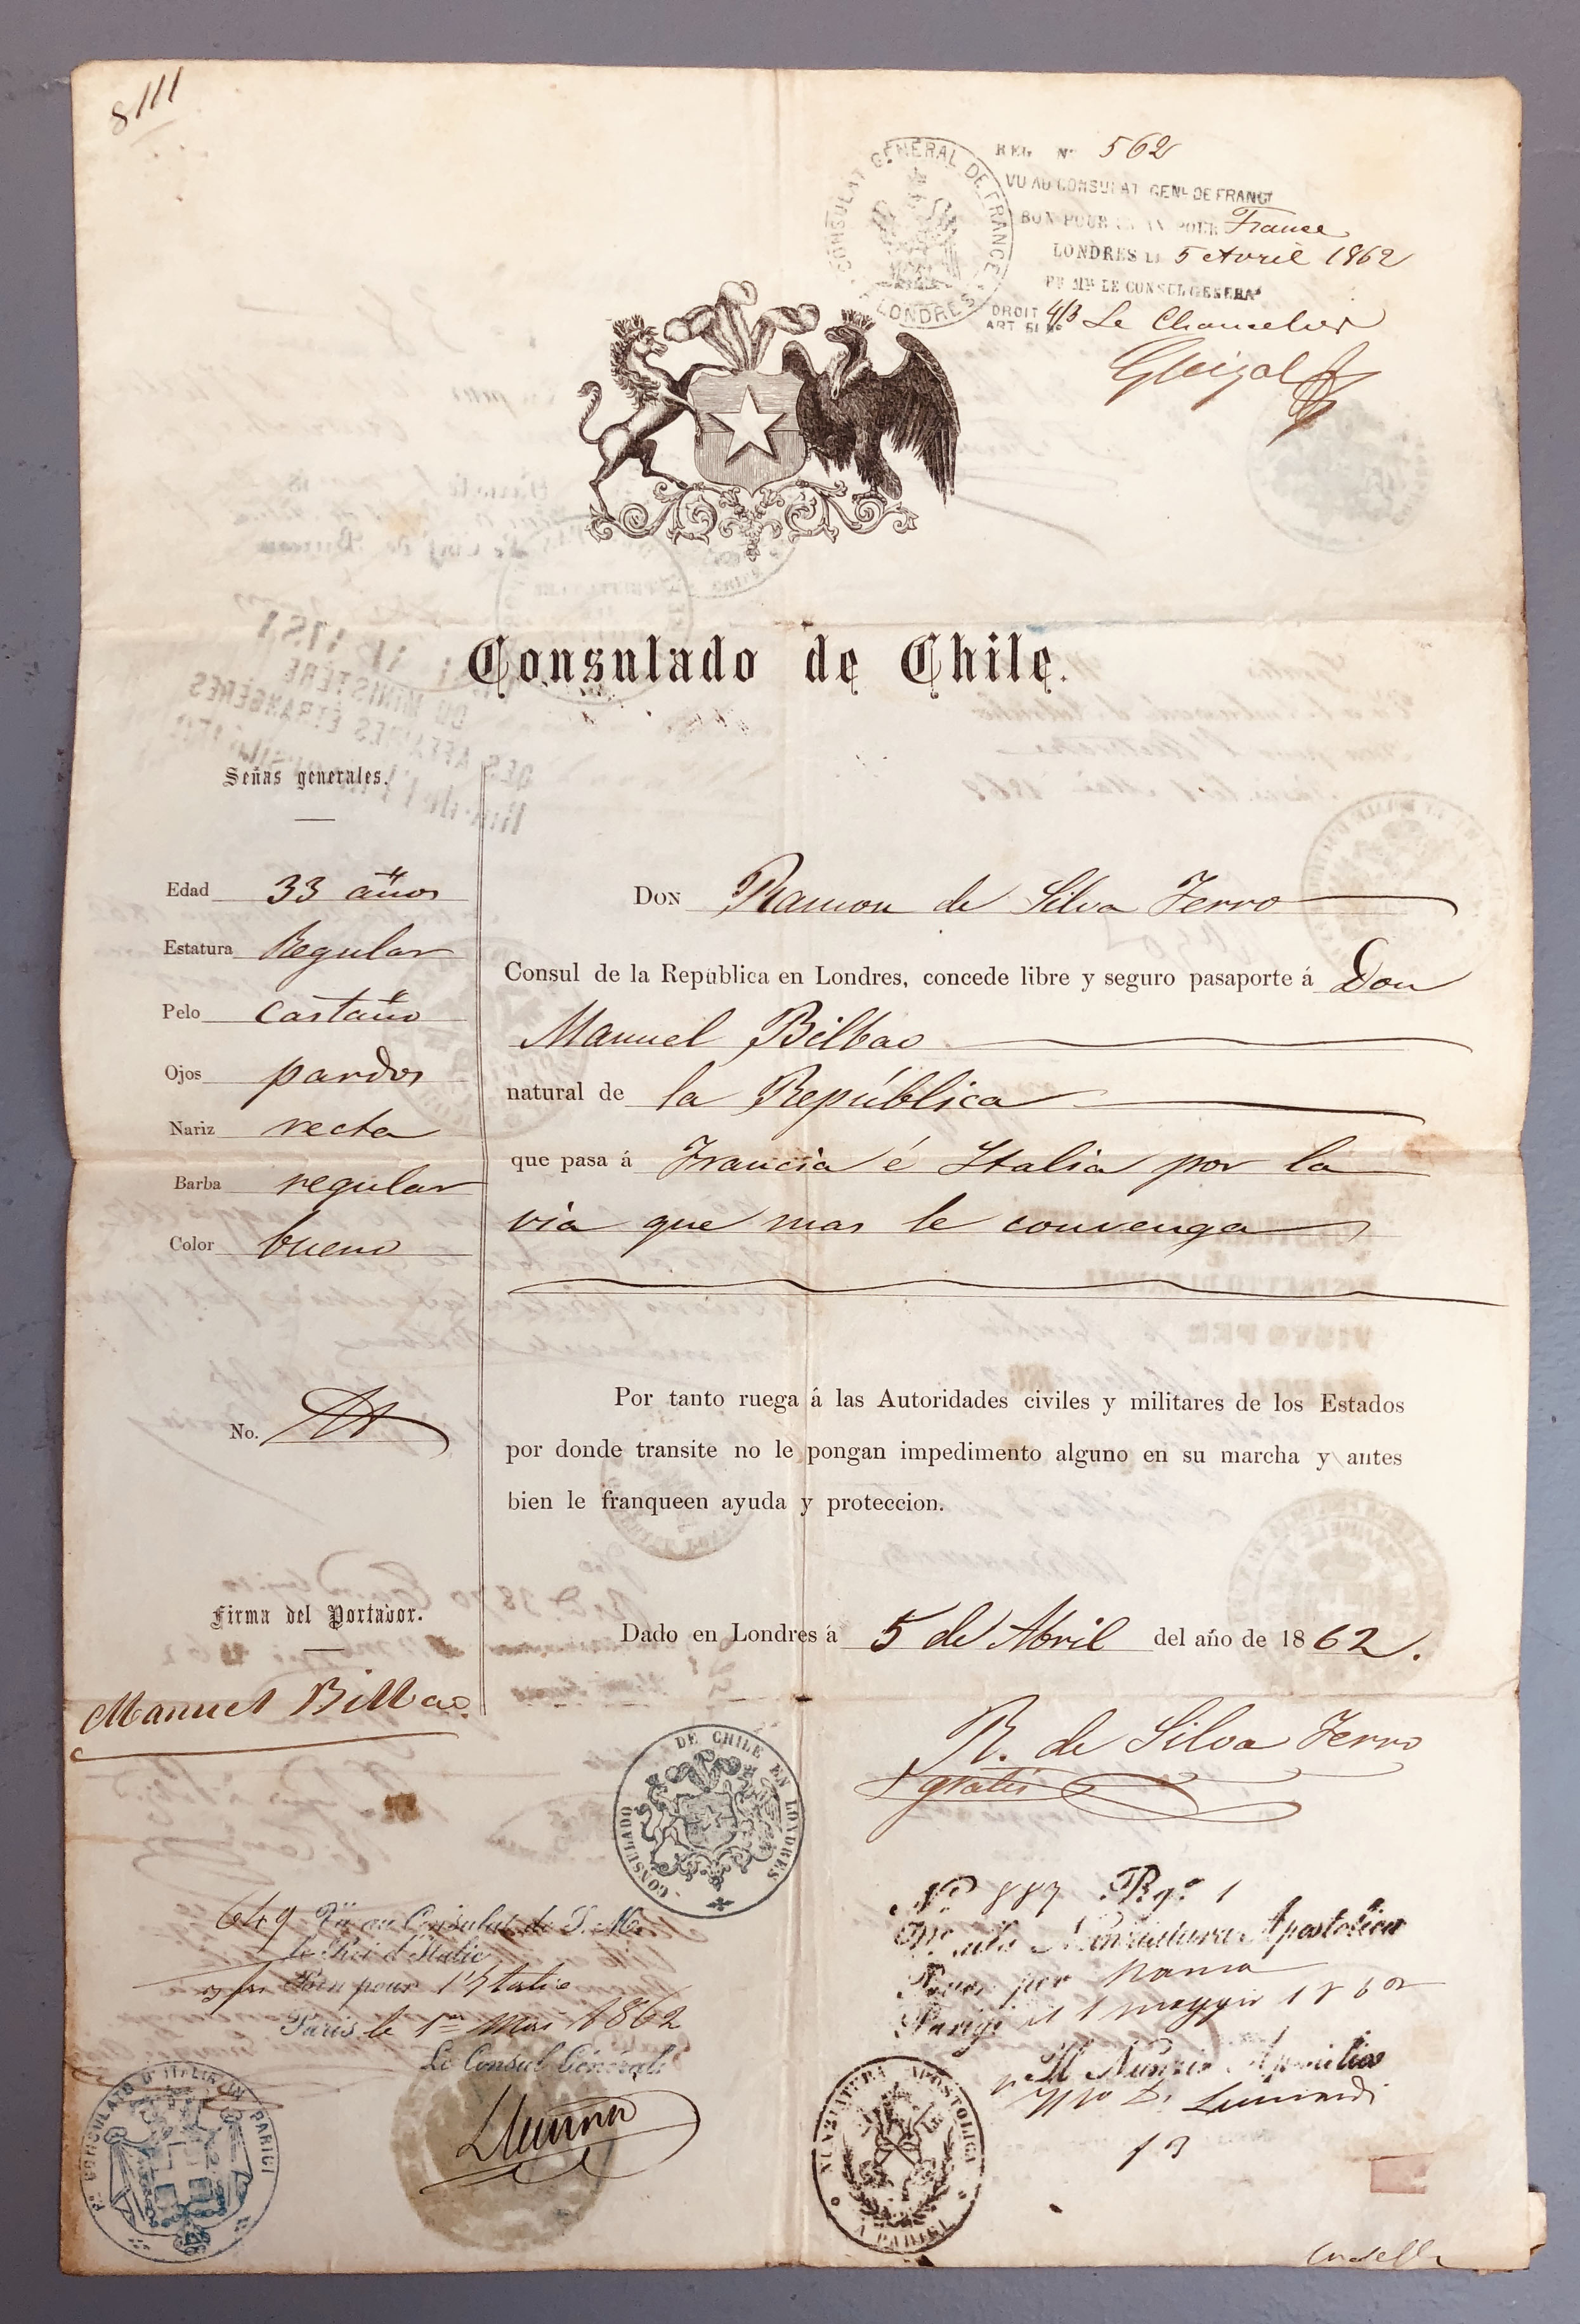 8111
CONSULAT GÉNÉRAL DE FRANCE
LONDRES
REG Nº 562
VU AU CONSULAT GENL DE FRANCE
BON POUR UN AN POUR France
LONDRES LE 5 Avril 1862
PR MR LE CONSUL GENERAL
DROIT 4/3 Le Chancelier
ART 51
Consulado de Chile.
Señas generales.
Edad 33 años
Estatura Regular
Pelo castaño
Ojos pardos
Nariz recta
Barba regular
Color bueno
No.
Firma del Portador.
Manuel Bilbao.
DON Ramon de Silva Ferro
Consul de la República en Londres, concede libre y seguro pasaporte á Don
Manuel Bilbao
natural de la República
que pasa á Francia é Italia por la
via que mas le convenga
Por tanto ruega á las Autoridades civiles y militares de los Estados
por donde transite no le pongan impedimento alguno en su marcha y antes
bien le franqueen ayuda y proteccion.
Dado en Londres á 5 de Abril del año de 1862.
R. de Silva Ferro
gratis
CONSULADO DE CHILE EN LONDRES
649 Vu au Consulat de S. M.
le Roi d'Italie
Bon pour l'Italie
Paris le 1er Mai 1862
Le Consul Général
Rº CONSOLATO D'ITALIA IN PARIGI
Nº 887 Rgº 1
Vº alla Nunziatura Apostolica
Buono per Roma
Parigi il 1 maggio 1862
Il Nunzio Apostolico
NUNZIATURA APOSTOLICA
A PARIGI